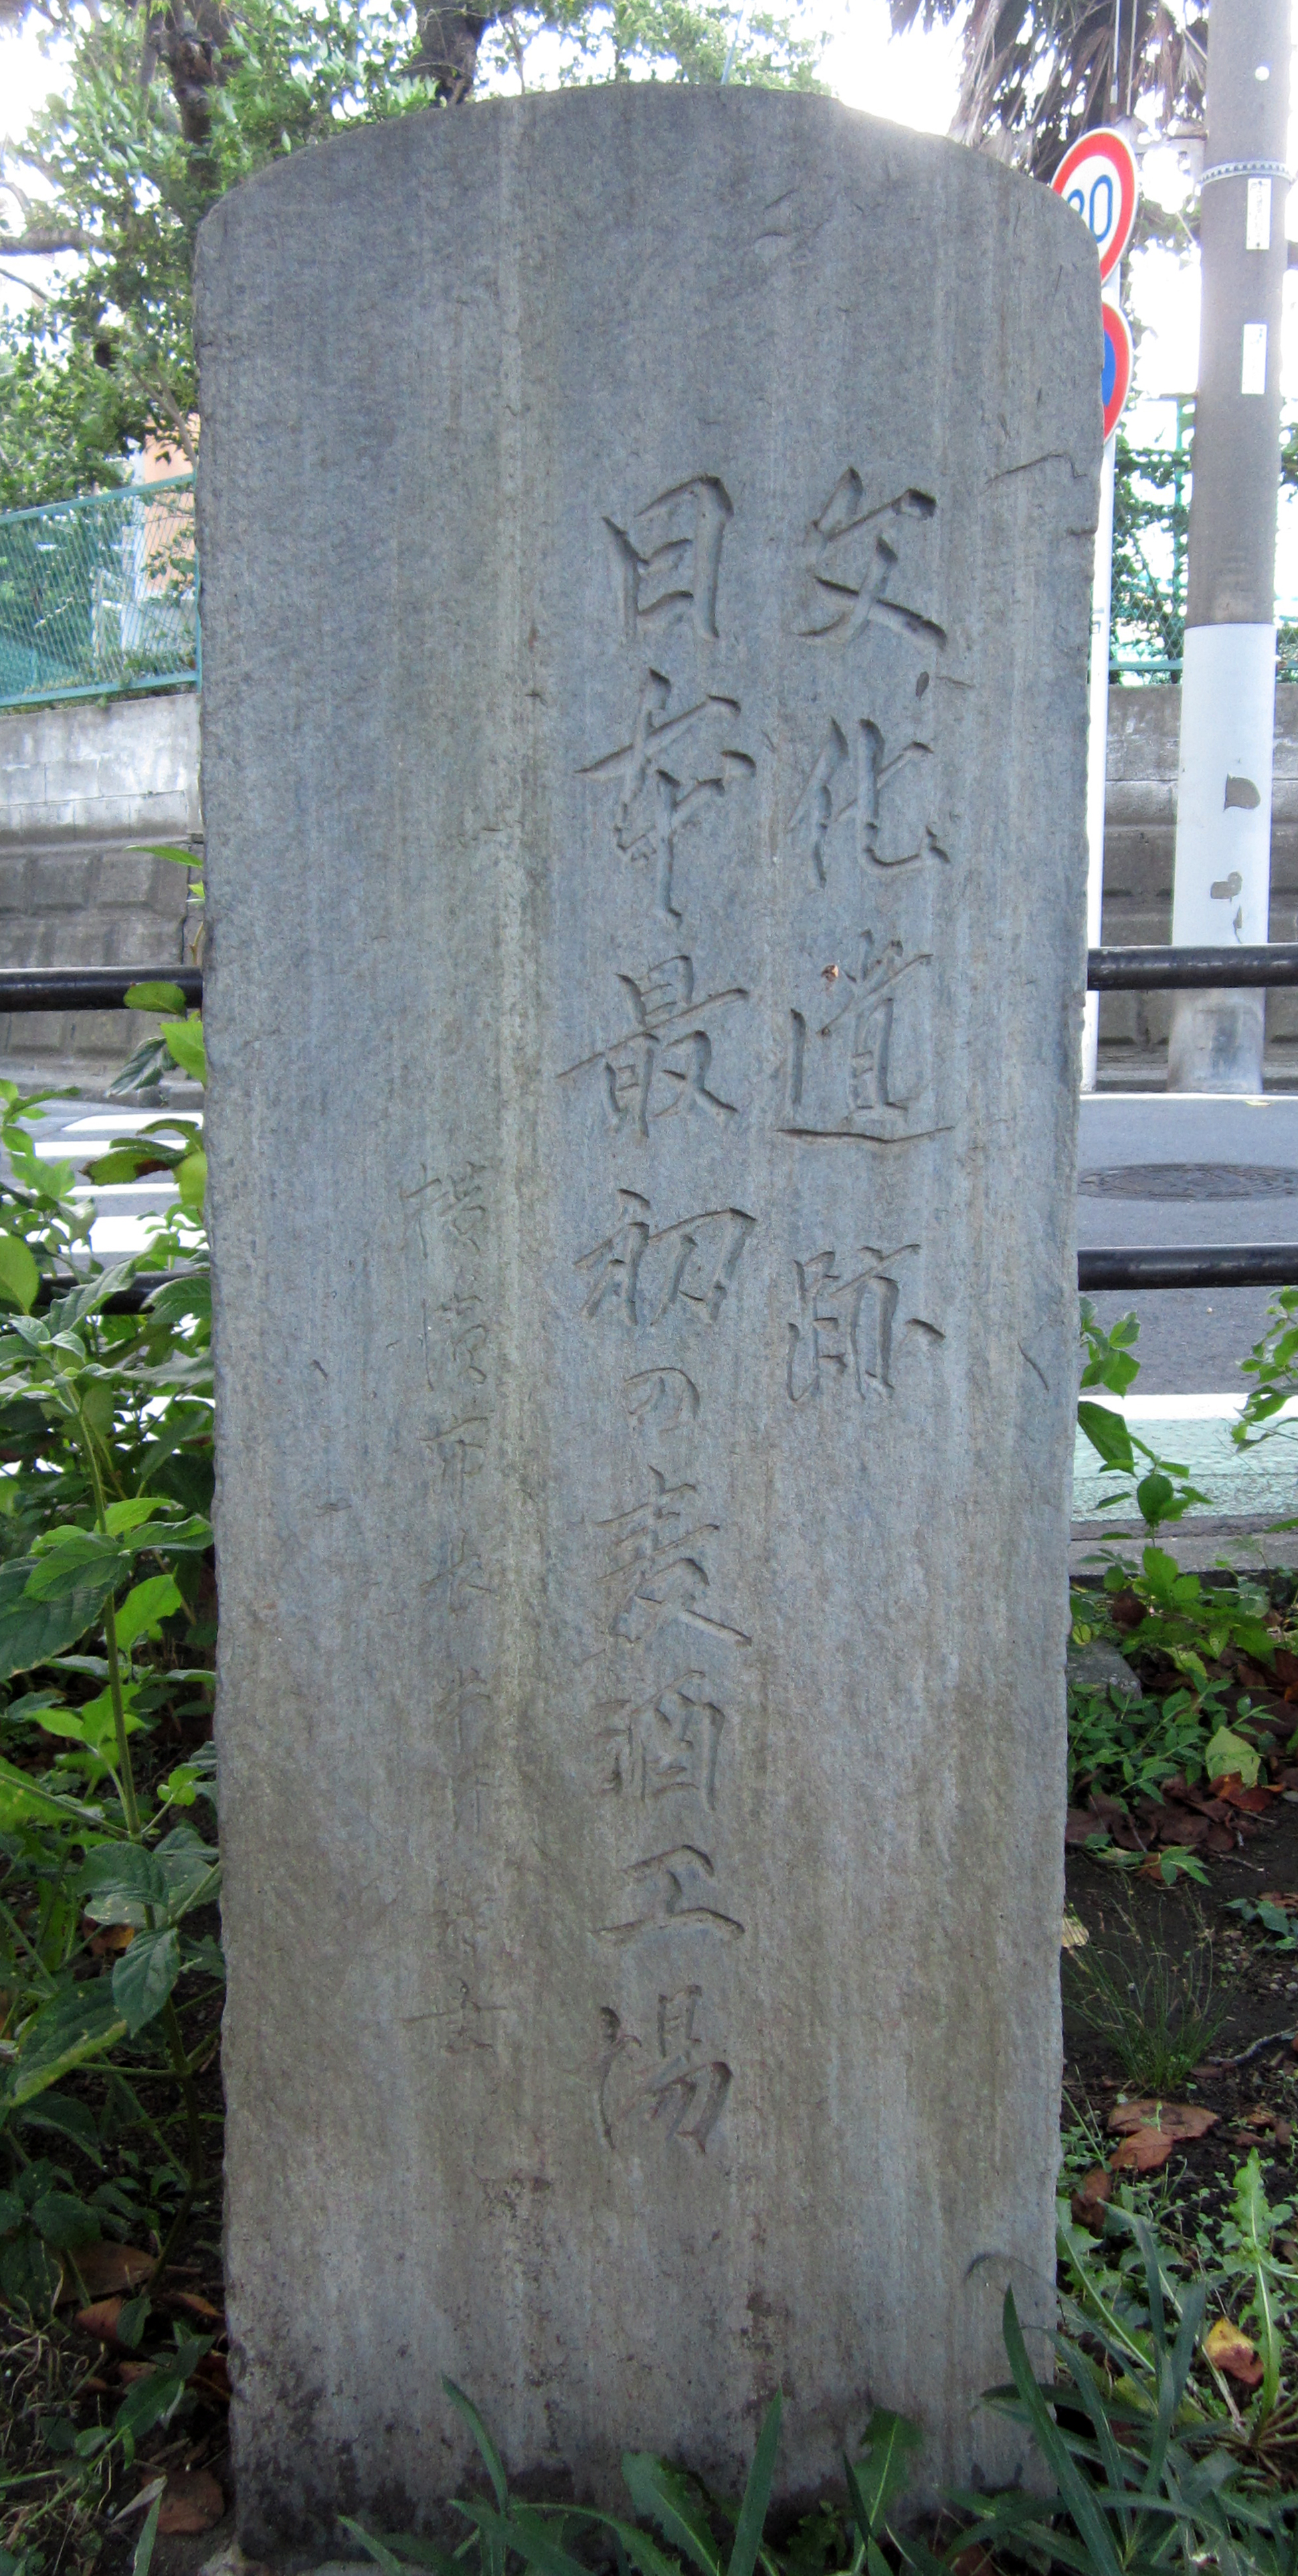 文化遺跡
日本最初の麦酒工場
横濱市長
書
30